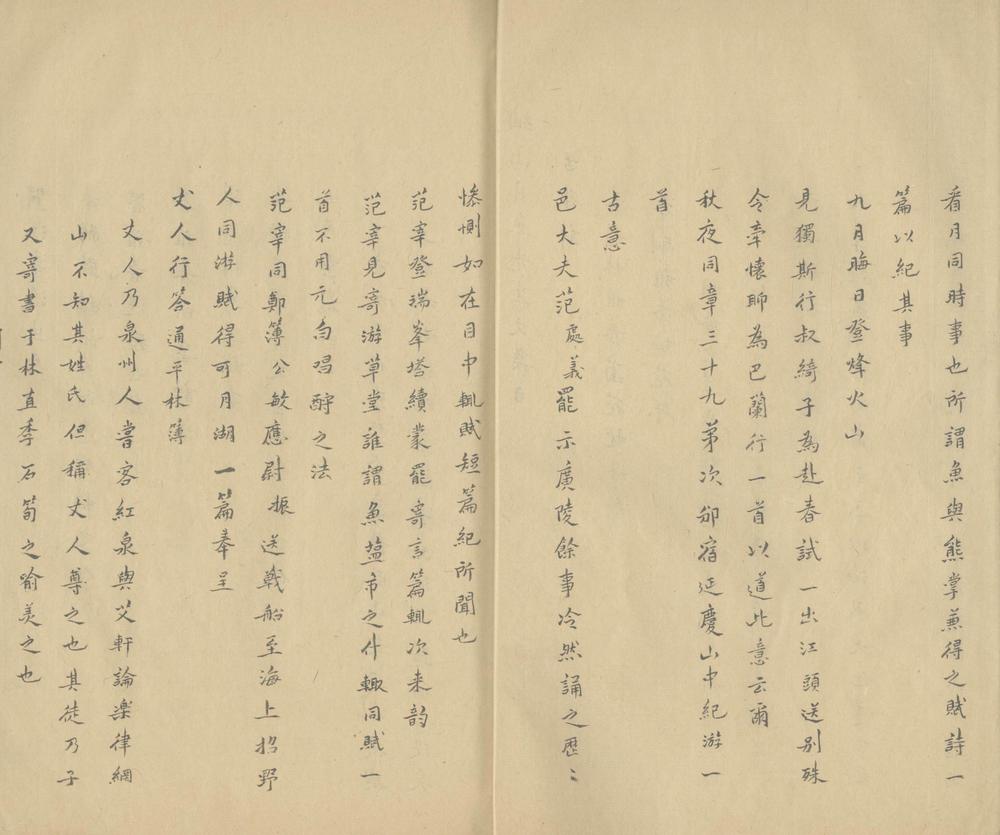 看月同時事也所謂魚與熊掌兼得之賦詩一
篇以紀其事
九月晦日登烽火山
見獨斯行叔綺子為赴春試一出江頭送別殊
令牽懷聊為巴蘭行一首以道此意云爾
秋夜同章三十九弟次邰宿延慶山中紀游一
首
古意
邑大夫范處義罷示廣陵餘事冷然誦之歷〻
慘惻如在目中輒賦短篇紀所聞也
范宰登瑞峯塔續蒙罷寄言篇輒次来韵
范宰見寄游草堂誰謂魚盐市之什輙同賦一
首不用元白唱酧之法
范宰同鄭簿公敏應尉振送戰船至海上招野
人同游賦得可月湖一篇奉呈
丈人行答通平林簿
丈人乃泉州人嘗客紅泉與艾軒論楽律網
山不知其姓氏但稱丈人尊之也其徒乃子
又寄書于林直季石筍之喻美之也